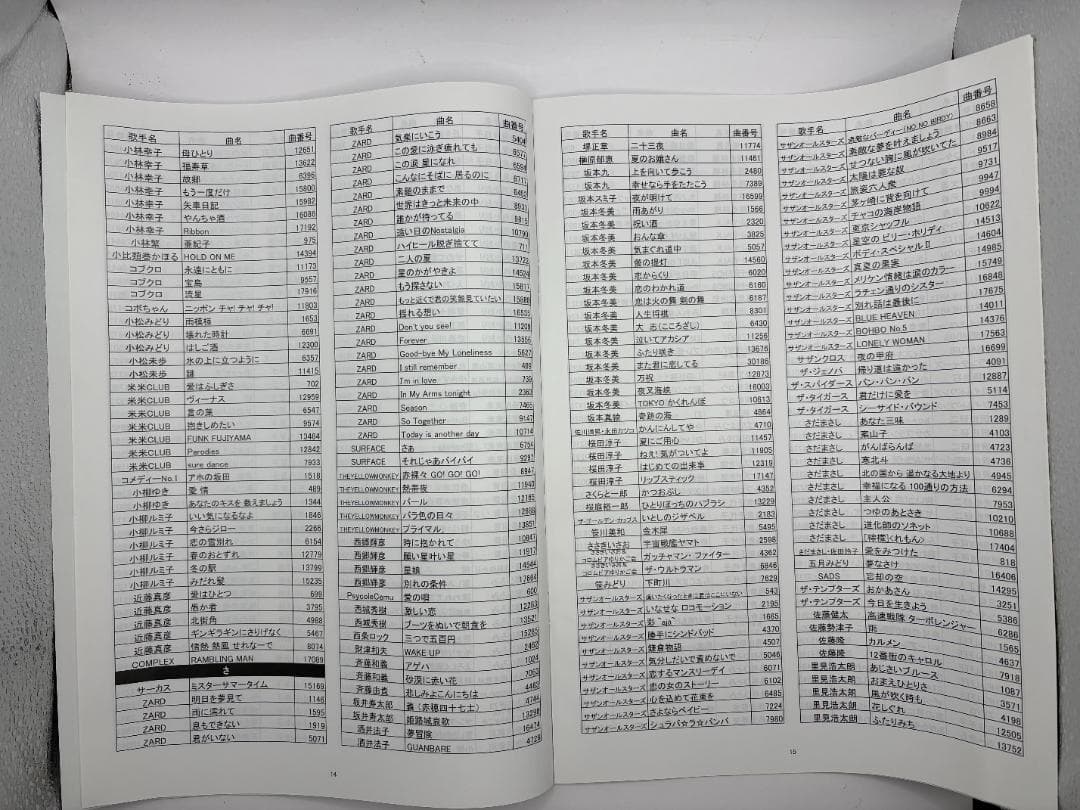 歌手名 曲名 曲番号
小林幸子 母ひとり 12661
小林幸子 福寿草 13622
小林幸子 故郷 6396
小林幸子 もう一度だけ 15800
小林幸子 矢車日記 15982
小林幸子 やんちゃ酒 16086
小林幸子 Ribbon 17192
小林繁 亜紀子 975
小比類巻かほる HOLD ON ME 14394
コブクロ 永遠にともに 11173
コブクロ 宝島 9557
コブクロ 流星 17916
コボちゃん ニッポン チャ! チャ! チャ! 11803
小松みどり 雨模様 1653
小松みどり 壊れた時計 6691
小松みどり はしご酒 12300
小松未歩 氷の上に立つように 6357
小松未歩 謎 11415
米米CLUB 愛はふしぎさ 702
米米CLUB ヴィーナス 12959
米米CLUB 言の葉 6547
米米CLUB 抱きしめたい 9574
米米CLUB FUNK FUJIYAMA 13464
米米CLUB Parodies 12842
米米CLUB sure dance 7933
コメディーNo.1 アホの坂田 1518
小柳ゆき 愛情 489
小柳ゆき あなたのキスを 数えましょう 1344
小柳ルミ子 いい気になるなよ 1846
小柳ルミ子 今さらジロー 2265
小柳ルミ子 恋の雪別れ 6154
小柳ルミ子 春のおとずれ 12779
小柳ルミ子 冬の駅 13799
小柳ルミ子 みだれ髪 15235
近藤真彦 愛はひとつ 699
近藤真彦 愚か者 3795
近藤真彦 北街角 4988
近藤真彦 ギンギラギンにさりげなく 5467
近藤真彦 情熱 熱風 せれなーで 8074
COMPLEX RAMBLING MAN 17089
さ
サーカス ミスターサマータイム 15169
ZARD 明日を夢見て 1146
ZARD 雨に濡れて 1595
ZARD 息もできない 1919
ZARD 君がいない 5071
歌手名 曲名 曲番号
ZARD 気楽にいこう 5404
ZARD この愛に泳ぎ疲れても 6577
ZARD この涙 星になれ 6594
ZARD こんなにそばに 居るのに 6711
ZARD 素直のままで
ZARD 世界はきっと未来の中
ZARD 誰かが待ってる
ZARD 遠い日のNostalgia 10790
ZARD ハイヒール脱ぎ捨てて 711
ZARD 二人の夏 13723
ZARD 星のかがやきよ 14524
ZARD もう探さない 15817
ZARD もっと近くで君の横顔見ていたい
ZARD 揺れる想い 16555
ZARD Don't you see! 11201
ZARD Forever 13556
ZARD Good-bye My Loneliness 5627
ZARD I still remember 489
ZARD I'm in love 739
ZARD In My Arms tonight 2363
ZARD Season 7465
ZARD So Together 9147
ZARD Today is another day 10714
SURFACE さぁ 6754
SURFACE それじゃあバイバイ 9291
THEYELLOWMONKEY 赤裸々 GO! GO! GO! 8947
THEYELLOWMONKEY 熱帯夜 11940
THEYELLOWMONKEY パール 12185
THEYELLOWMONKEY バラ色の日々
THEYELLOWMONKEY プライマル。 13851
西郷輝彦 時に抱かれて 10947
西郷輝彦 願い星叶い星 11917
西郷輝彦 星娘 14544
西郷輝彦 別れの条件 17664
PsycoleQemu 愛の唄 600
西城秀樹 激しい恋 12263
西城秀樹 ブーツをぬいで朝食を 13521
西条ロック 三つで五百円 15285
財津和夫 WAKE UP 2462
斉藤和義 アゲハ 1024
斉藤和義 砂漠に赤い花 7063
斉藤由貴 悲しみよこんにちは 4462
坂井寿太郎 義 (赤穂四十七士) 8744
坂井寿太郎 姫路城哀歌 13298
酒井法子 夢冒険 16474
酒井法子 GUANBARE 4729
14
歌手名 曲名 曲番号
堺正章 二十三夜 11774
榊原郁恵 夏のお嬢さん 11461
坂本九 上を向いて歩こう 2480
坂本九 幸せなら手をたたこう 7389
坂本スミ子 夜が明けて 16599
坂本冬美 雨あがり 1566
坂本冬美 祝い酒 2320
坂本冬美 おんな傘 3825
坂本冬美 気まぐれ道中 5057
坂本冬美 蛍の提灯 14560
坂本冬美 恋からくり 6020
坂本冬美 恋のわかれ道 6160
坂本冬美 恋は火の舞 剣の舞 6187
坂本冬美 人生将棋 8301
坂本冬美 大志 (こころざし) 6430
坂本冬美 泣いてアカシア 11256
坂本冬美 ふたり咲き 13676
坂本冬美 また君に恋してる 30186
坂本冬美 万祝 12873
坂本冬美 夜叉海峡 16003
坂本冬美 TOKYO かくれんぼ 10813
坂本真綾 奇跡の海 4864
佐川満男・永田カツコ かんにんしてや 4710
桜田淳子 夏にご用心 11457
桜田淳子 ねえ! 気がついてよ 11905
桜田淳子 はじめての出来事 12319
桜田淳子 リップスティック 17147
さくらと一郎 かつおぶし 4352
桜庭裕一郎 ひとりぼっちのハブラシ 13229
ザ・ゴールデン・カップス いとしのジザベル 2183
笹川美和 金木犀 5495
ささきいさお 宇宙戦艦ヤマト 2598
ささきいさお&コロムビアゆりかご会 ガッチャマン・ファイター 4362
ささきいさお&コロムビアゆりかご会 ザ・ウルトラマン 6846
笹みどり 下町川 7629
サザンオールスターズ 逢いたくなった時に君はここにいない 543
サザンオールスターズ いなせな ロコモーション 2195
サザンオールスターズ 彩〜aja〜 1665
サザンオールスターズ 勝手にシンドバッド 4370
サザンオールスターズ 鎌倉物語 4507
サザンオールスターズ 気分しだいで責めないで 5046
サザンオールスターズ 恋するマンスリーデイ 6071
サザンオールスターズ 恋の女のストーリー 6102
サザンオールスターズ 心を込めて花束を 6485
サザンオールスターズ さよならベイビー 7224
サザンオールスターズ シュラバ☆ラ☆バンバ 7980
歌手名 曲名 曲番号
サザンオールスターズ 素敵なバーディー(NO NO BIRDY) 8658
サザンオールスターズ 素敵な夢を叶えましょう 8663
サザンオールスターズ せつない胸に風が吹いてた 8984
サザンオールスターズ 太陽は罪な奴 9517
サザンオールスターズ 旅姿六人衆 9731
サザンオールスターズ 茅ヶ崎に背を向けて 9947
サザンオールスターズ チャコの海岸物語 9994
サザンオールスターズ 東京シャッフル 10622
サザンオールスターズ 星空の ビリー・ホリデイ 14513
サザンオールスターズ ボディ・スペシャルⅡ 14604
サザンオールスターズ 真夏の果実 14985
サザンオールスターズ メリケン情緒は涙のカラー 15749
サザンオールスターズ ラチエン通りのシスター 16848
サザンオールスターズ 別れ話は最後に 17675
サザンオールスターズ BLUE HEAVEN 14011
サザンオールスターズ BOHBO No.5 14376
サザンオールスターズ LONELY WOMAN 17563
サザンクロス 夜の甲府 16699
ザ・ジェノバ 帰り道は遠かった 4091
ザ・スパイダース バン・バン・バン 12887
ザ・タイガース 君だけに愛を 5114
ザ・タイガース シーサイド・バウンド 7453
さだまさし あなた三昧 1289
さだまさし 案山子 4103
さだまさし がんばらんば 4723
さだまさし 寒北斗 4736
さだまさし 北の国から 遥かなる大地より 4945
さだまさし 幸福になる 100通りの方法 6294
さだまさし 主人公 7953
さだまさし つゆのあとさき 10210
さだまさし 道化師のソネット 10688
さだまさし 「檸檬」(れもん) 17404
さだまさし・佐田玲子 愛をみつけた 818
五月みどり 夢なさけ 16406
SADS 忘却の空 14295
ザ・テンプターズ おかあさん 3251
ザ・テンプターズ 今日を生きよう 5386
佐藤健太 高速戦隊 ターボレンジャー 6286
佐藤勢津子 街 1565
佐藤隆 カルメン 4637
佐藤隆 12番街のキャロル 7918
里見浩太朗 あじさいブルース 1087
里見浩太朗 おまえひとりさ 3571
里見浩太朗 風が吹く時も 4198
里見浩太朗 花しぐれ 12505
里見浩太朗 ふたりみち 13752
15